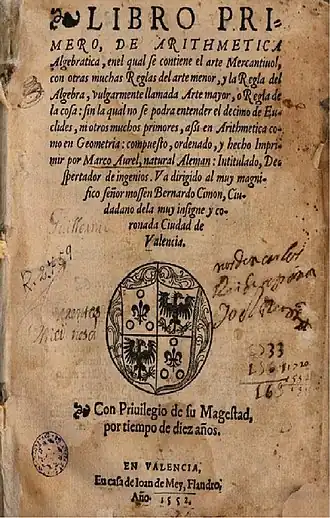 LIBRO PRI-
MERO, DE ARITHMETICA
Algebratica, enel qual se contiene el arte Mercantiuol,
con otras muchas Reglas del arte menor, y la Regla del
Algebra, vulgarmente llamada Arte mayor, o Regla de
la cosa: sin la qual no se podra entender el decimo de Eu-
clides, ni otros muchos primores, assi en Arithmetica co-
mo en Geometria: compuesto, ordenado, y hecho Impri-
mir por Marco Aurel, natural Aleman: Intitulado, De-
spertador de ingenios. Va dirigido al muy magni-
fico señor mossen Bernardo Cimon, Ciu-
dadano dela muy insigne y co-
ronada Ciudad de
Valencia.
Con Priuilegio de su Magestad,
por tiempo de diez años.
EN VALENCIA,
En casa de Ioan de Mey, Flandro,
Año 1552.